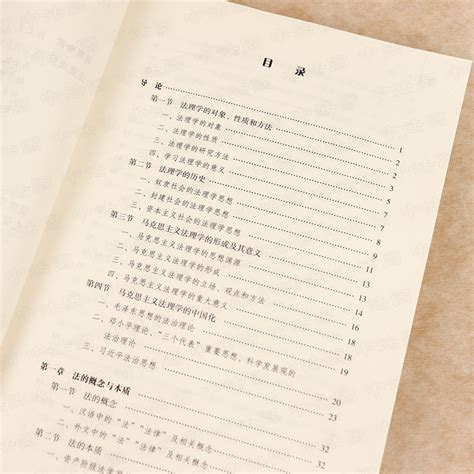 目 录
导 论
第一节 法理学的对象、性质和方法
一、法理学的对象
二、法理学的性质
三、法理学的研究方法
四、学习法理学的意义
第二节 法理学的历史
一、奴隶社会的法理学思想
二、封建社会的法理学思想
三、资本主义社会的法理学思想
第三节 马克思主义法理学的形成及其意义
一、马克思主义法理学的思想渊源
二、马克思主义法理学的形成
三、马克思主义法理学的立场、观点和方法
四、马克思主义法理学的重大意义
第四节 马克思主义法理学的中国化
一、毛泽东思想的法治理论
二、邓小平理论、“三个代表”重要思想、科学发展观的
法治理论
三、习近平法治思想
第一章 法的概念与本质
第一节 法的概念
一、汉语中的“法”“法律”及相关概念
二、外文中的“法”“法律”及相关概念
第二节 法的本质
一、资产阶级法学